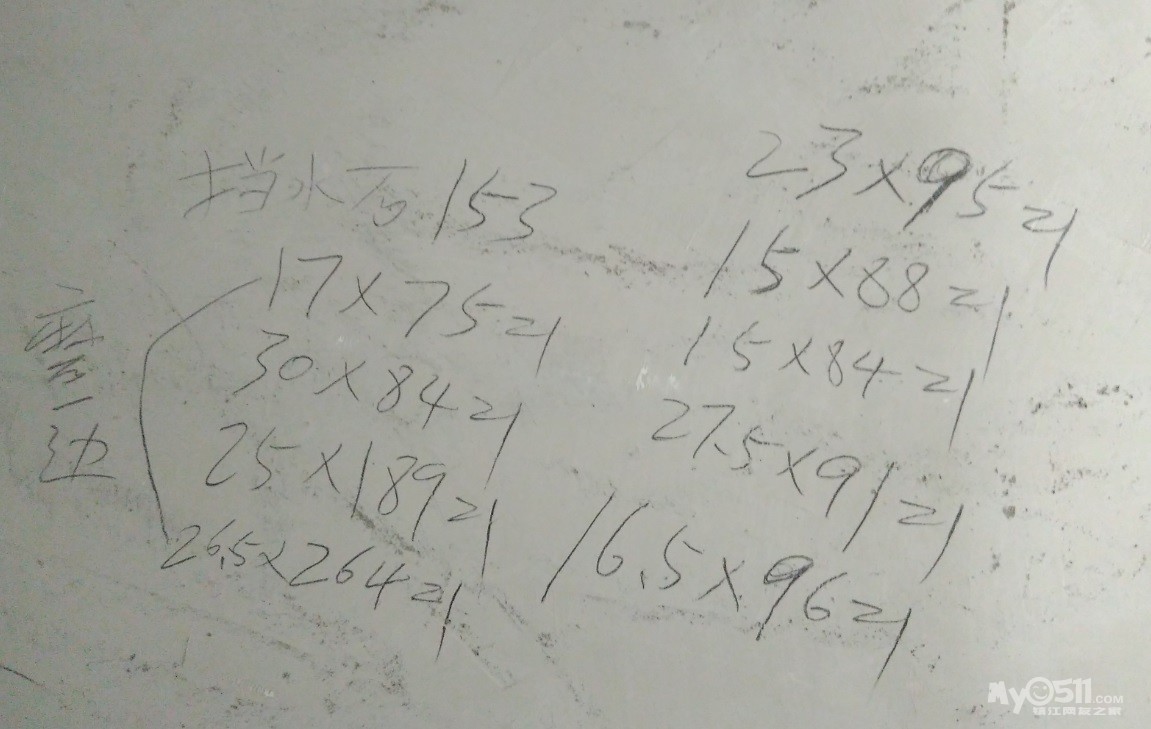 挡水石 153
17×75=1
30×84=1
25×189=1
26.5×264=1
磨边
23×95=1
15×88=1
15×84=1
27.5×91=1
16.5×96=1
My0511.COM
镇江网友之家